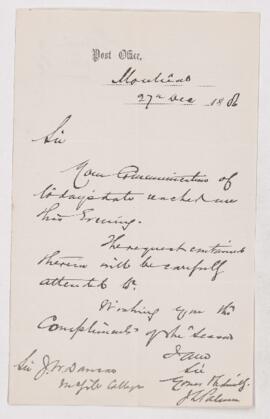 Post Office,
Montreal
27th Dec 18
Sir
Your Communication of
to day's date reached me
this Evening.
The request contained
therein will be carefully
attended to.
Wishing you the
Compliments of the Season
I am
Sir
Yours
Sir J. W. Dawson
McGill College